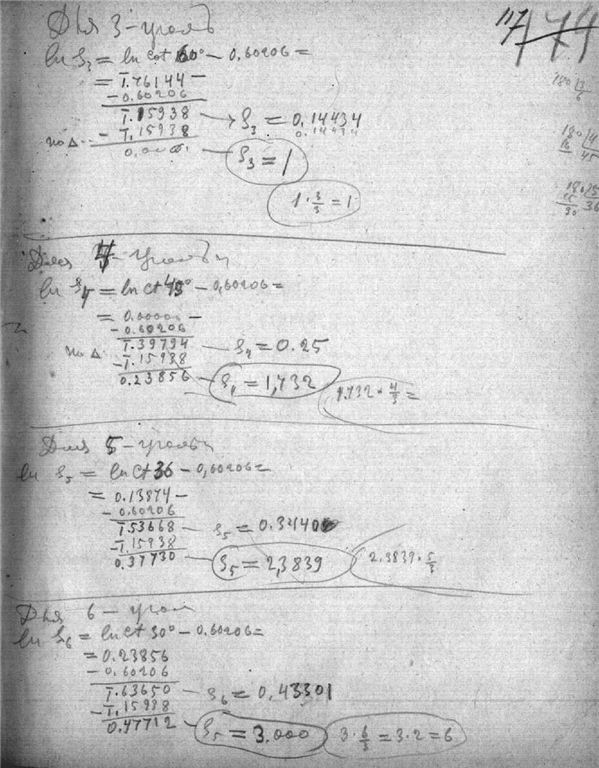 117
474
Для 3-угольн
ln S₃ = ln cot 60° − 0,60206 =
= 1̄.76144 −
− 0.60206
1̄.15938 → S₃ = 0,14434
0.14434
по Δ. − 1̄.15938
0.0000. — S₃ = 1
1 · 3/3 = 1
180
180 4
16 45
180 5
15 36
30
Для 4-угольн
ln S₄ = ln ct 45° − 0,60206 =
= 0.00000 −
− 0.60206
1̄.39794 — S₄ = 0.25
по Δ. − 1̄.15938
0.23856 — S₄ = 1,732
1.732 · 4/3 =
Для 5-угольн
ln S₅ = ln ct 36 − 0,60206 =
= 0.13874 −
− 0.60206
1̄.53668 — S₅ = 0.3440
− 1̄.15938
0.37730 — S₅ = 2,3839
2.3839 · 5/3
Для 6-угольн
ln S₆ = ln ct 30° − 0.60206 =
= 0.23856
− 0.60206
1̄.63650 — S₆ = 0,43301
− 1̄.15938
0.47712 — S₅ = 3.000
3 · 6/3 = 3.2 = 6